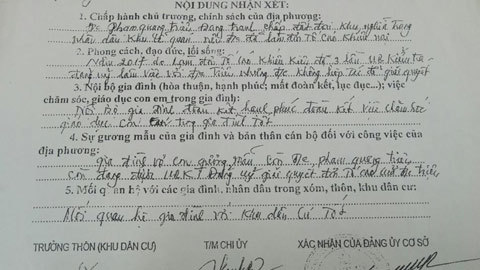 NỘI DUNG NHẬN XÉT:
1. Chấp hành chủ trương, chính sách của địa phương:
Đ/c Phạm Quang Triều Đang tranh chấp đất đai khu nghĩa trang
2. Phong cách, đạo đức, lối sống:
Năm 2017 do làm đơn tố cáo 3 lần UB Kiểm tra
Đảng uỷ làm việc với Đ/c Triều nhưng Đ/c không hợp tác để giải quyết
3. Nội bộ gia đình (hòa thuận, hạnh phúc; mất đoàn kết, lục đục...); việc
chăm sóc, giáo dục con em trong gia đình:
Nội bộ gia đình đoàn kết, hạnh phúc đoàn kết việc chăm sóc
giáo dục con trong gia đình Tốt
4. Sự gương mẫu của gia đình và bản thân cán bộ đối với công việc của
địa phương:
gia đình vợ con gương mẫu còn Đ/c phạm quang triều
còn đang UBKT Đảng uỷ giải quyết đơn Tố cáo của Đ/c triều
5. Mối quan hệ với các gia đình, nhân dân trong xóm, thôn, khu dân cư:
Mối quan hệ gia đình với khu dân cư Tốt
TRƯỞNG THÔN (KHU DÂN CƯ) T/M CHI ỦY XÁC NHẬN CỦA ĐẢNG ỦY CƠ SỞ